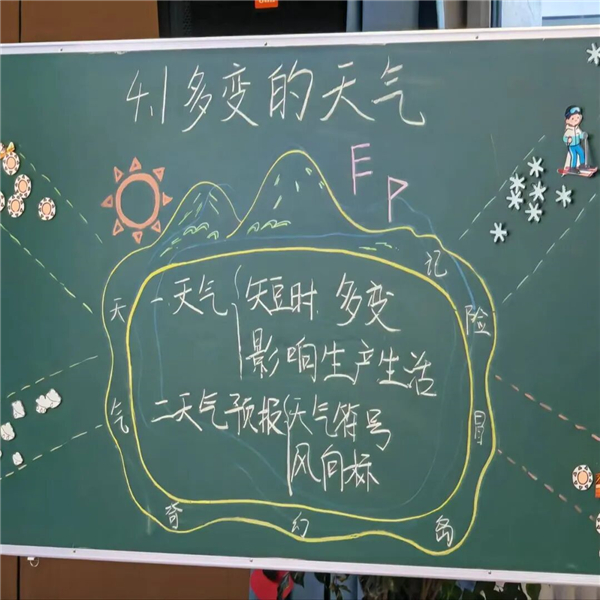 4.1多变的天气
F
P
一天气 短时 多变
影响生产生活
二天气预报 天气符号
风向标
天气奇幻岛冒险记